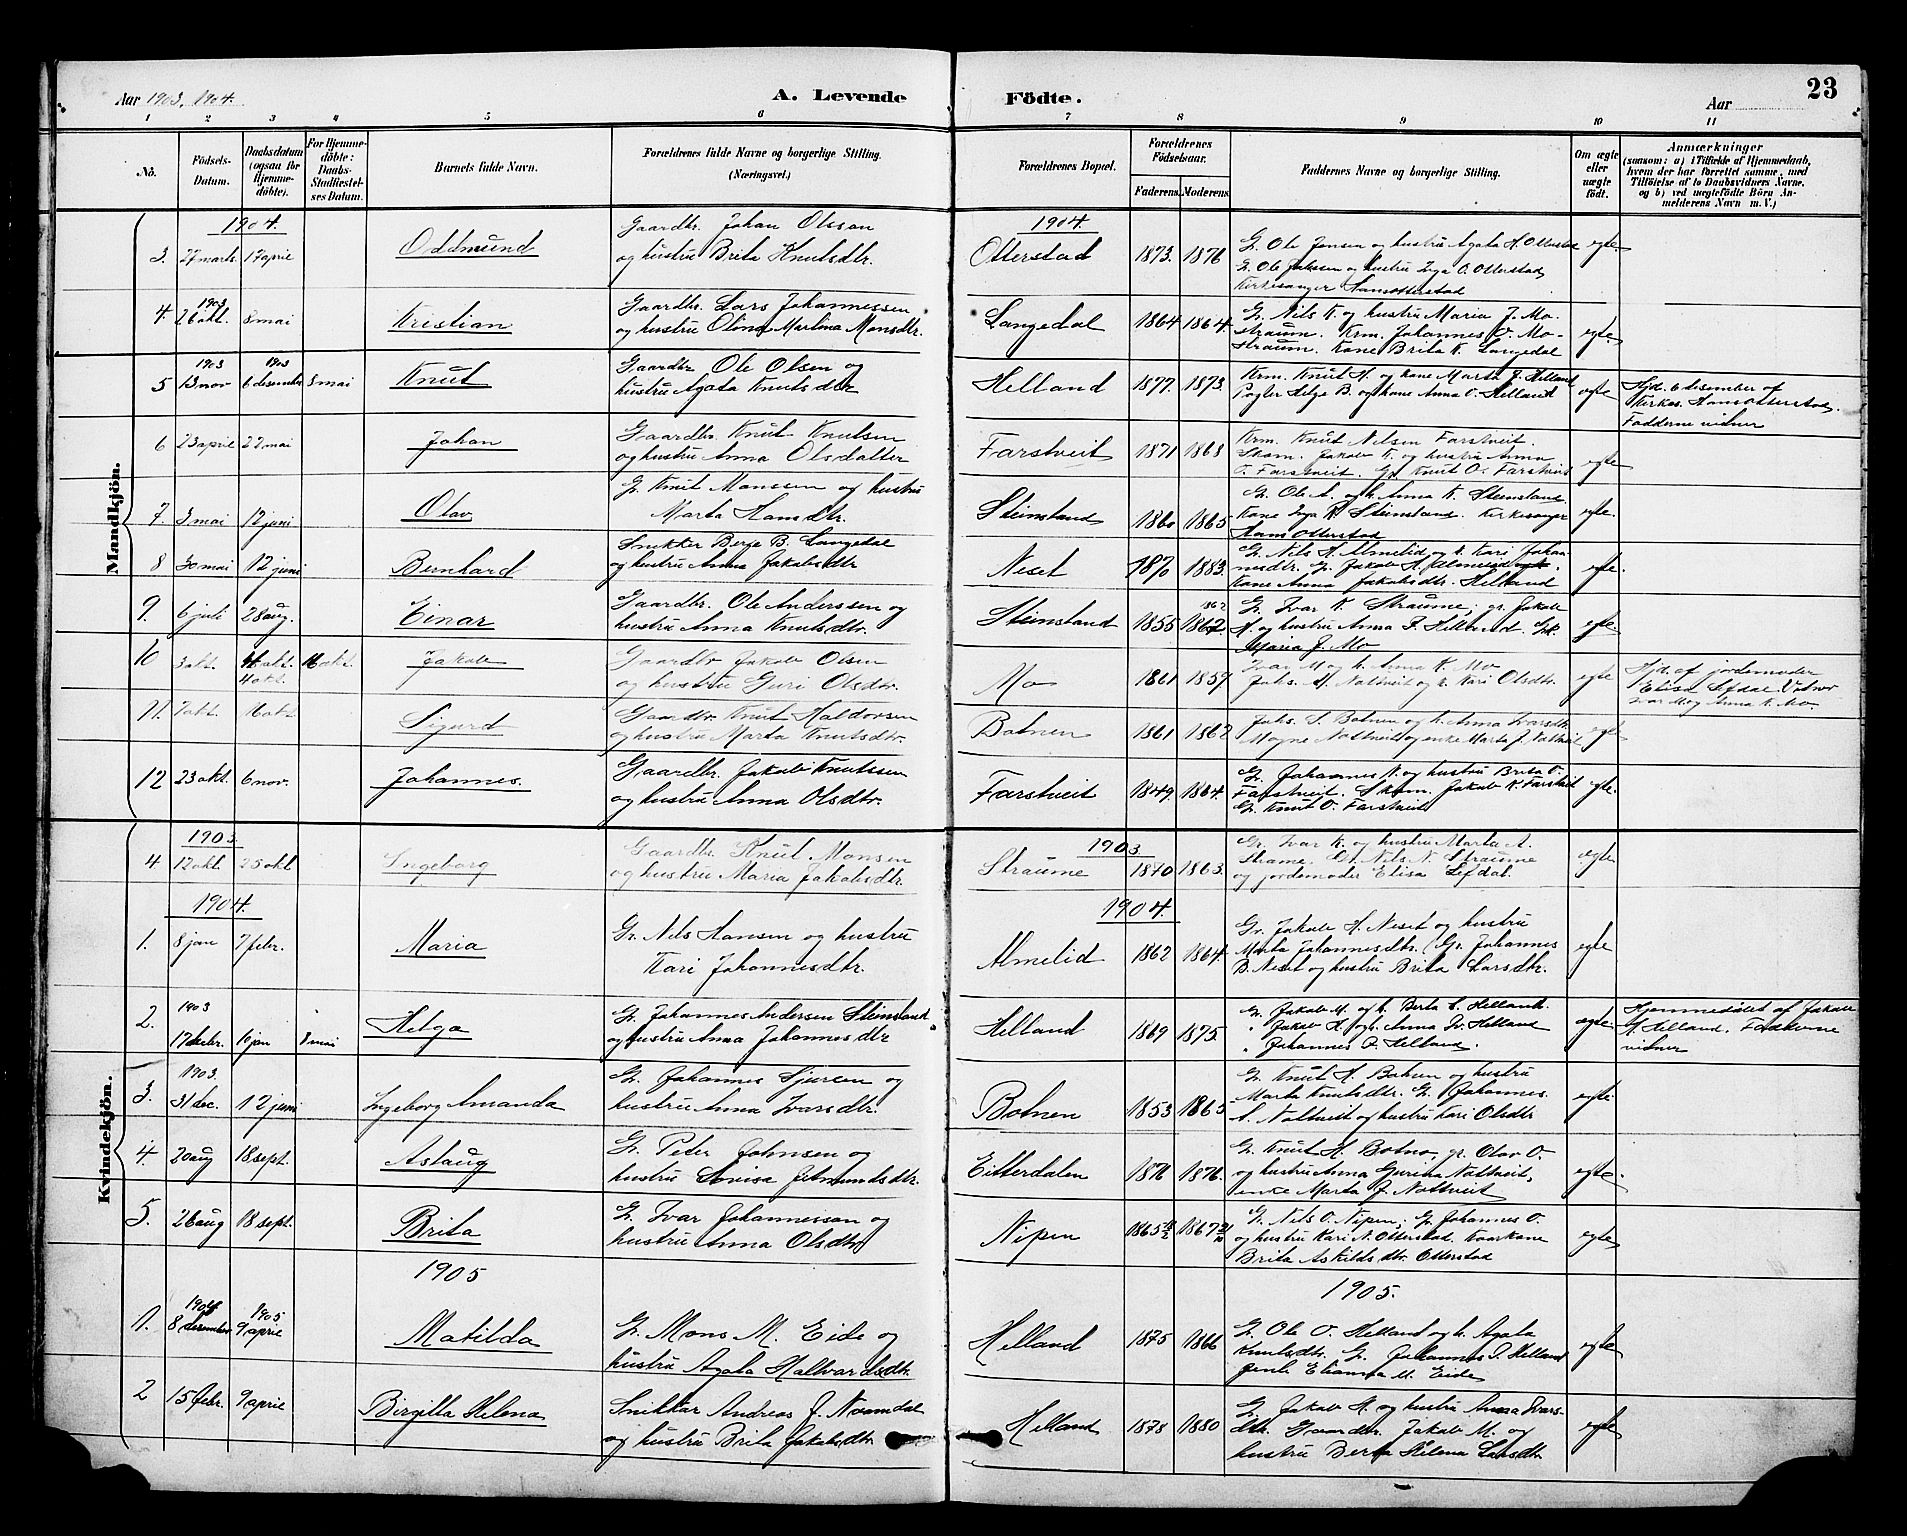 Aar 1903, 1904.
A. Levende
Födte.
Aar
23
1 2 3 4 5 6 7 8 9 10 11
No.
Födsels-
Datum.
Daabsdatum
(ogsaa for
Hjemme-
döbte).
For Hjemme-
döbte:
Daabs-
Stadfæstel-
ses Datum.
Barnets fulde Navn.
Forældrenes fulde Navne og borgerlige Stilling.
(Næringsvei.)
Forældrenes Bopæl.
Forældrenes
Födselsaar.
Faderens. Moderens.
Faddernes Navne og borgerlige Stilling.
Om ægte
eller
uægte
födt.
Anmærkninger
(saasom: a) i Tilfælde af Hjemmedaab,
hvem der har forrettet samme, med
Tilföielse af to Daabsvidners Navne,
og b) ved uægtefödte Börn An-
melderens Navn m. V.)
Mandkjön.
1904.
1904.
3. 27 marts 17 april Oddmund Gaardbr. Johan Olsson
og hustru Brita Knutsdtr.
Otterstad 1873. 1876 G. Ole Jensen og hustru Agata H. Otterstad
G. Ole Jakbsen og hustru Inga O. Otterstad,
Kirkesanger Hans Otterstad
egte.
4. 1903 26 okt. 8 mai Kristian Gaardbr. Lars Johannessen
og hustru Olina Martina Monsdtr.
Langedal 1864 1864. G. Nils K. og hustru Maria J. Mo-
straum. Krm. Johannes V. Mo-
straum. Kone Brita K. Langedal
egte.
5 1903 13 nov 1903 6 desember 8 mai Knut Gaardbr Ole Olsen og
hustru Agata Knutsdtr
Helland 1877. 1873. Krm. Knut H. og kone Marta J. Helland
Helge B. og kone Anna O. Helland
egte
Hjd. 6 desember af
Kirkes. Hans Otterstad.
Fadderne vidner
6 23 april 22 mai Johan Gaardbr. Knut Knutsen
og hustru Anna Olsdatter
Farstveit 1871 1868 Krm. Knut Nilsen Farstveit.
Skom. Jakob K. og hustru Anna
O. Farstveit. Gr. Knut O. Farstveit
egte
7. 3 mai 12 juni Olav G. Knut Monssen og hustru
Marta Hansdtr.
Steinsland 1860 1865 G. Ole A. og h. Anna K. Steinsland
Kone Inga K. Steinsland. Kirkesanger
Hans Otterstad
egte.
8 30 mai 12 juni Bernhard Snekker Berje B. Langedal
og hustru Anna Jakobsdtr
Neset 1870 1883. G. Nils H. Almelid og h. Kari Johan-
nesdtr. G. Jakob H. Almelid
Kone Anna Jakobsdtr. Helland
egte.
9. 6 juli 28 aug. Einar Gaardbr. Ole Anderssen og
hustru Anna Knutsdtr.
Steinsland 1855 1862 1862 G. Ivar K. Straume; gr. Jakob
H. og hustru Anna I. Helland.
Maria J. Mo
egte.
10 3 okt. 4 okt. 16 okt. Jakob Gaardbr Jakob Olsen
og hustru Guri Olsdtr.
Mo 1861 1859 Ivar M og h. Anna K. Mo
Johs. M. Nottveit og k. Kari Olsdtr.
egte
Hjd. af jordemoder
Elisa Lefdal. Vidner
Ivar M og Anna K. Mo.
11. 7 okt. 16 okt. Sigurd Gaardbr. Knut Haldorsen
og hustru Marta Knutsdtr.
Botnen 1861 1862 Johs. S. Botnen og h. Anna Ivarsdtr
Mogne Nottveit og enke Marta J. Nottveit
egte
12 23 okt. 6 nov. Johannes. Gaardbr. Jakob Knutssen
og hustru Anna Olsdtr.
Farstveit 1849. 1864. G. Johannes K. og hustru Brita O.
Farstveit. Skom. Jakob K. Farstveit
G. Knut O. Farstveit
egte.
Kvindekjön.
1903.
1903.
4. 12 okt 25 okt Ingeborg Gaardbr. Knut Monsen
og hustru Maria Jakobsdtr.
Straume 1870 1863. Gr. Ivar K. og hustru Marta A.
Strame. Nils N. Straume
og jordemoder Elisa Lefdal.
egte
1904.
1904.
1. 8 jan 7 febr. Maria Gr. Nils Hansen og hustru
Kari Johannesdtr.
Almelid 1862 1864. Gr. Jakob H. Neset og hustru
Marta Johannesdtr. Gr. Johannes
B. Neset og hustru Brita Larsdtr.
egte
2. 1903 10 jan 8 mai Helga G. Johannes Andersen Steinsland
og hustru Anna Johannesdtr
Helland 1869 1875. G. Jakob M. og h. Berta L. Helland.
" Jakob H. og h. Anna Iv. Helland
" Johannes I. Helland.
egte
Hjemmedöbt af Jakob
H. Helland. Fadderne
vidner
3. 1903. 31 dec. 12 juni Ingeborg Amanda G. Johannes Sjursen og
hustru Anna Ivarsdtr.
Botnen 1853 1865 G. Knut H. Botnen og hustru
Marta Knutsdtr. G. Johannes.
S. Nottveit og hustru Kari Olsdtr
egte.
4. 20 aug 18 sept. Aslaug G. Peter Johnsen og
hustru Lovisa Jetmundsdtr.
Eitterdalen 1876 1876. G. Knut H. Botno, gr. Olav O.
og hustru Anna Gurina Nottveit,
enke Marta J. Nottveit
egte.
5. 26 aug 18 sept. Brita G. Ivar Johannesson og
hustru Anna Olsdtr
Nipen 1865 1867 G. Nils O. Nipen; G. Johannes O.
og hustru Kari N. Otterstad. Kaarkone
Brita Askildsdtr. Otterstad
egte
1905
1905.
1. 1904 8 desember 1905 9 april Matilda G. Mons M. Eide og
hustru Agata Hallvardsdtr.
Helland 1875 1866 G. Ole O. Helland og h. Agata
Knutsdtr. G. Johannes I. Helland
gente Elianna M. Eide
egte
2 15 febr. 9 april Birgitta Helena Snikkar Andreas J. Naamdal
og hustru Brita Jakobsdtr
Helland 1878 1880 G. Jakob H. og hustru Anna Ivars-
dtr. Gaardbr. Jakob M. og
hustru Berta Helena Larsdtr.
egte